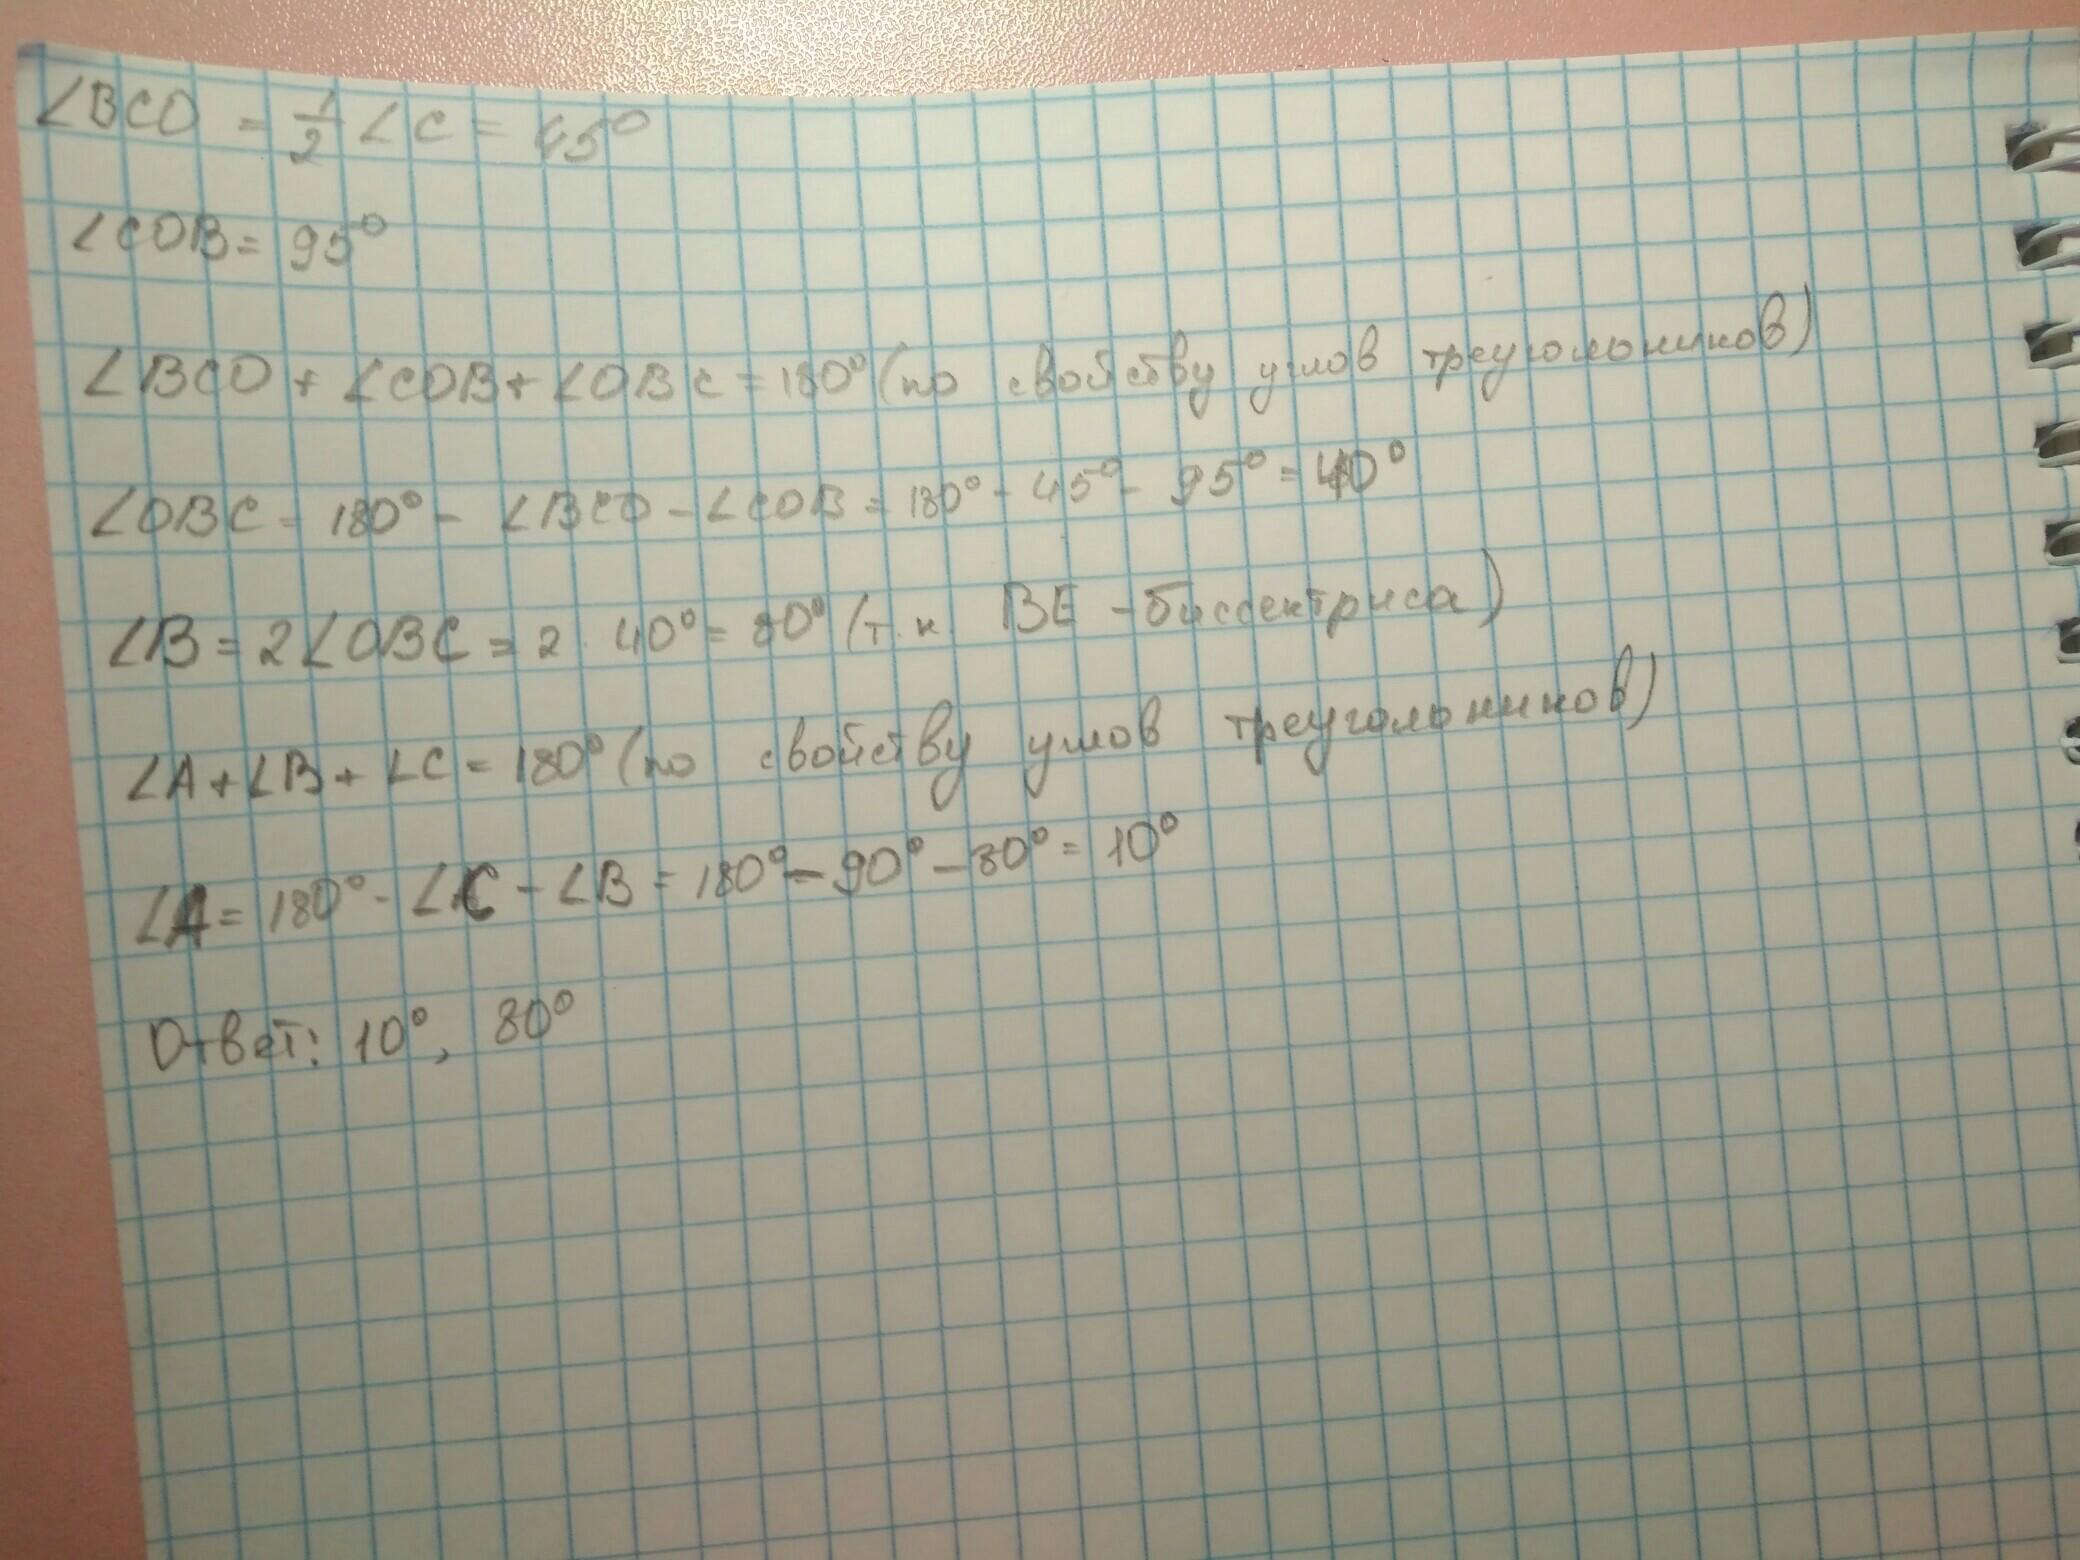 ∠BCO = 1/2 ∠C = 45°
∠COB = 95°
∠BCO + ∠COB + ∠OBC = 180° (по свойству углов треугольников)
∠OBC = 180° - ∠BCO - ∠COB = 180° - 45° - 95° = 40°
∠B = 2∠OBC = 2 · 40° = 80° (т.к. BE - биссектриса)
∠A + ∠B + ∠C = 180° (по свойству углов треугольников)
∠A = 180° - ∠C - ∠B = 180° - 90° - 80° = 10°
Ответ: 10°, 80°